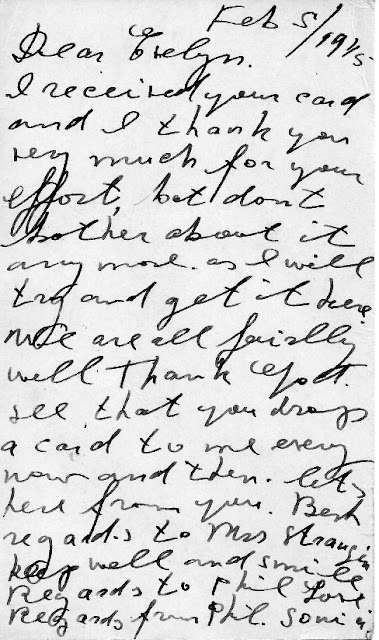 Feb 5/1915
Dear Evelyn.
I received your card
and I thank you
very much for your
effort, but dont
bother about it
any more. as I will
try and get it here
We are all fairlly
well thank You.
see that you drop
a card to me every
now and then. lets
here from you. Best
regards to Mrs
keep well and smile
Regards to Phil Love
Regards from Phil.